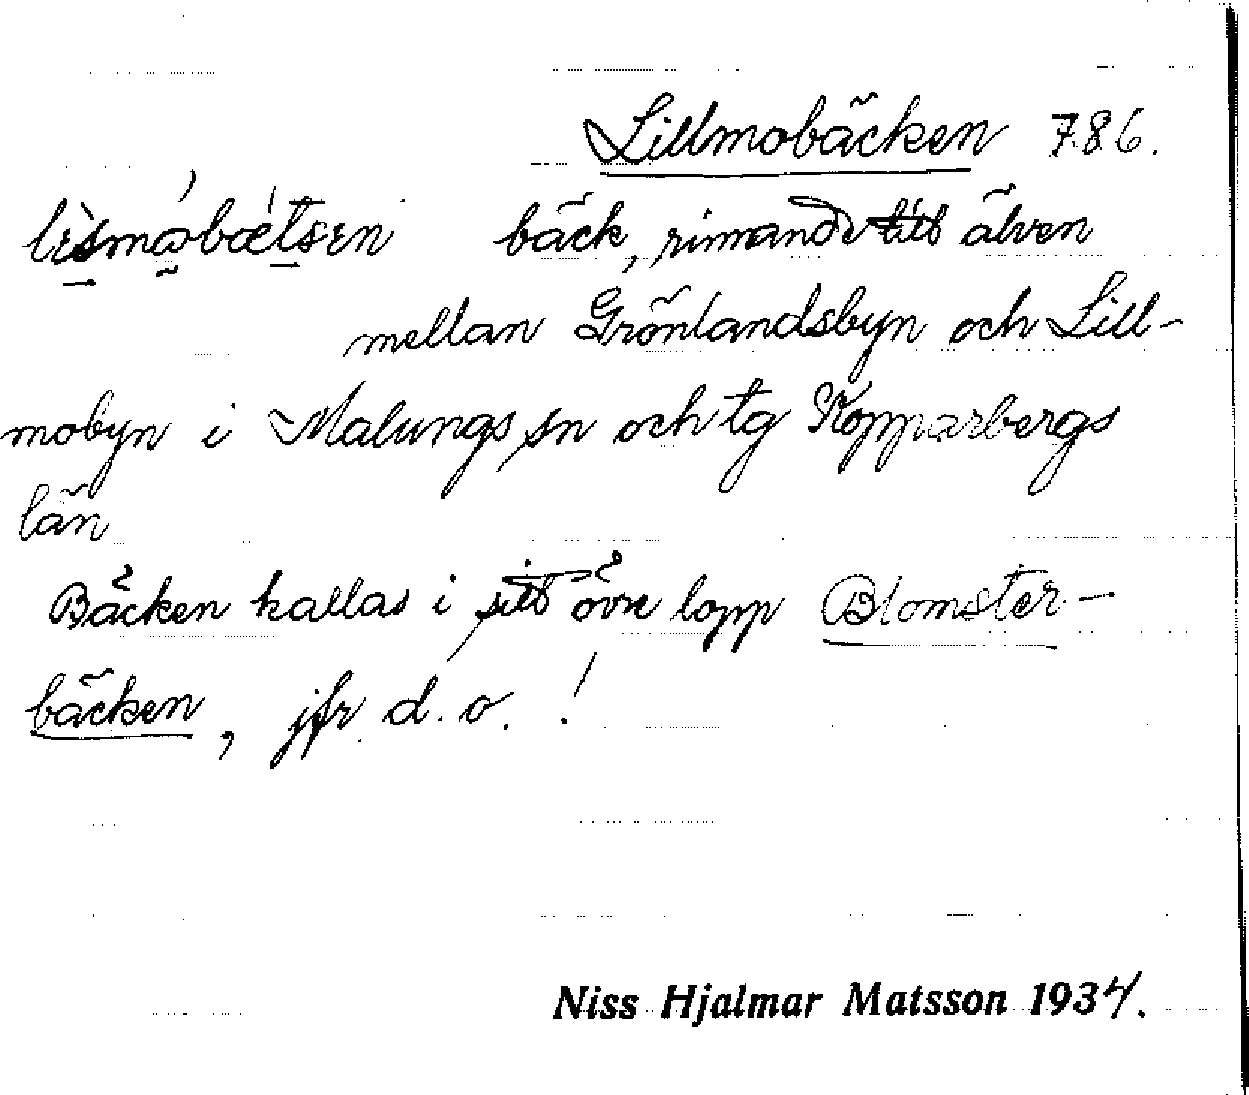 Lillmobäcken 786.
bäck, rinnande till älven
mellan Grönlandsbyn och Lill-
mobyn i Malungs sn och tg Kopparbergs
län
Bäcken kallas i sitt övre lopp Blomster-
bäcken, jfr d. o. !
Niss Hjalmar Matsson 1934.